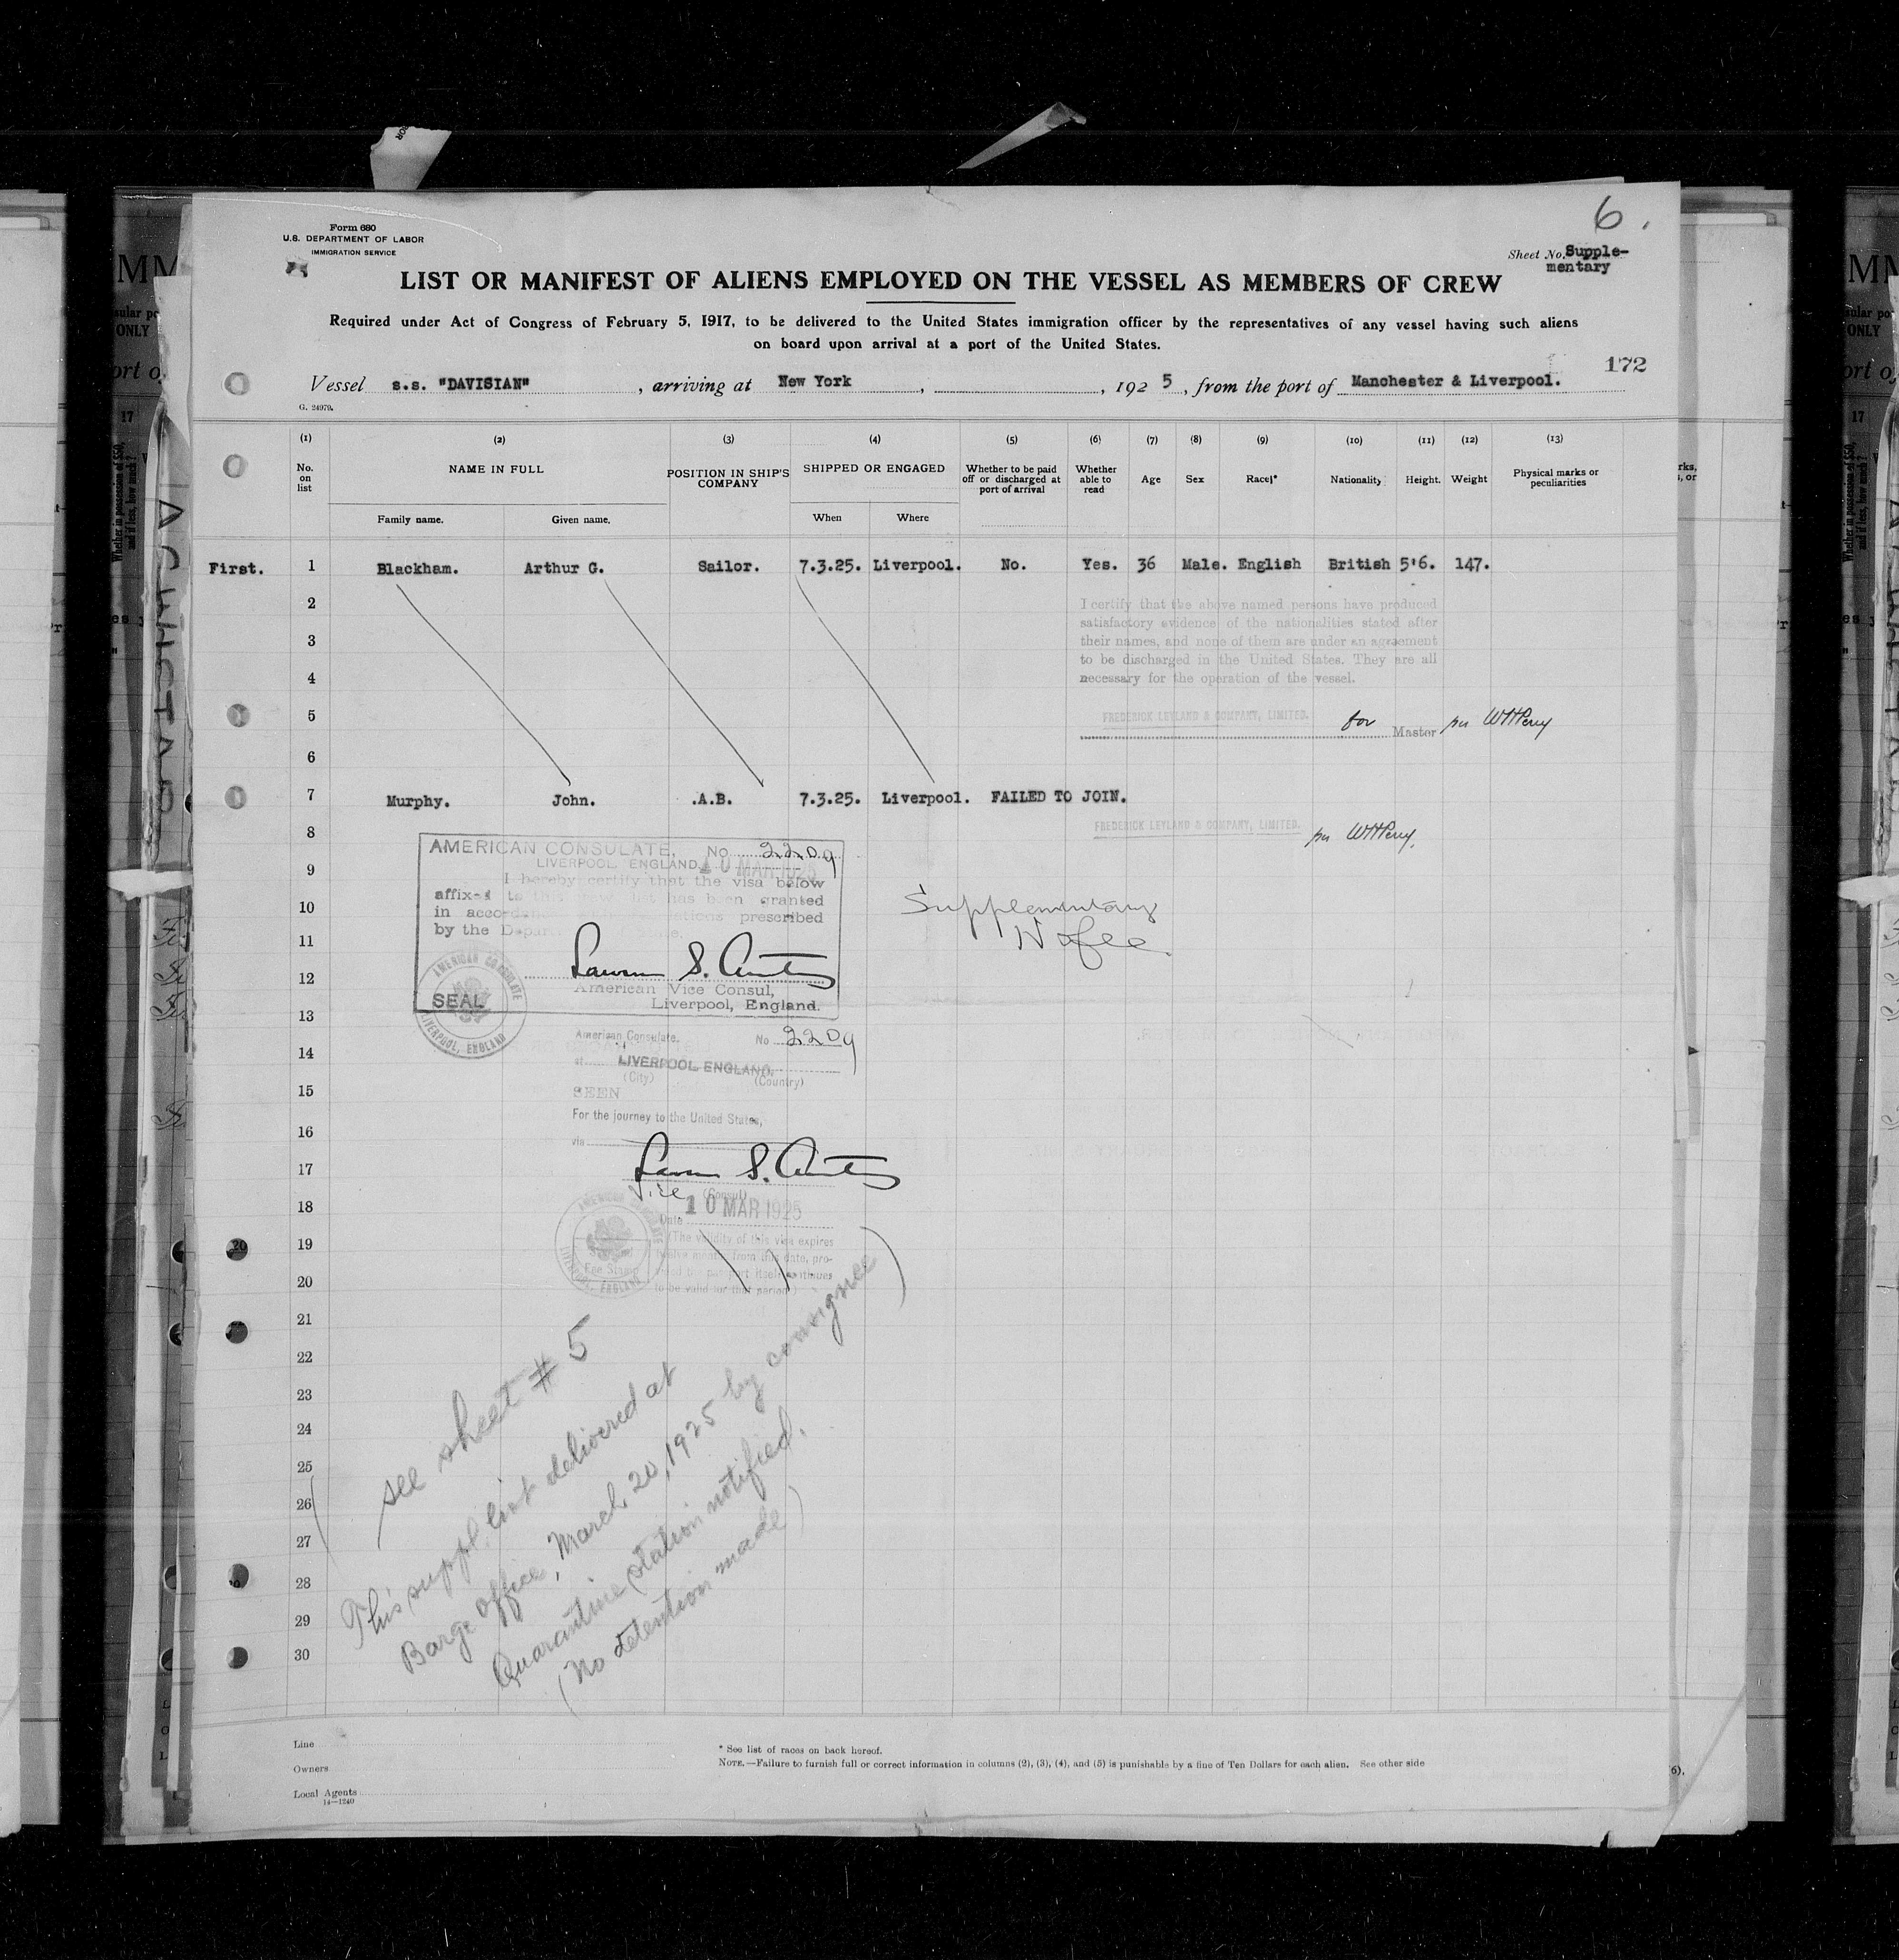 6.
Form 680
U.S. DEPARTMENT OF LABOR
IMMIGRATION SERVICE
Sheet No. Supple-
mentary
LIST OR MANIFEST OF ALIENS EMPLOYED ON THE VESSEL AS MEMBERS OF CREW
Required under Act of Congress of February 5, 1917, to be delivered to the United States immigration officer by the representatives of any vessel having such aliens
on board upon arrival at a port of the United States.
172
Vessel s.s. "DAVISIAN", arriving at New York, , 1925, from the port of Manchester & Liverpool.
G. 24979.
(1) (2) (3) (4) (5) (6) (7) (8) (9) (10) (11) (12) (13)
No. on list NAME IN FULL POSITION IN SHIP'S COMPANY SHIPPED OR ENGAGED Whether to be paid off or discharged at port of arrival Whether able to read Age Sex Race* Nationality Height. Weight Physical marks or peculiarities
Family name. Given name. When Where
First. 1 Blackham. Arthur G. Sailor. 7.3.25. Liverpool. No. Yes. 36 Male. English British 5'6. 147.
2
I certify that the above named persons have produced
satisfactory evidence of the nationalities stated after
3 their names, and none of them are under an agreement
to be discharged in the United States. They are all
4 necessary for the operation of the vessel.
5 FREDERICK LEYLAND & COMPANY, LIMITED. for Master per WHPerry
6
7 Murphy. John. .A.B. 7.3.25. Liverpool. FAILED TO JOIN.
8 FREDERICK LEYLAND & COMPANY, LIMITED. per WHPerry.
AMERICAN CONSULATE, No. 2209
LIVERPOOL, ENGLAND. 10 MAR 1925
9 I hereby certify that the visa below
affixed to this crew list has been granted
10 in accordance prescribed
by the Department
Supplementary
No fee
11
12 American Vice Consul,
SEAL
Liverpool, England.
AMERICAN CONSULATE
LIVERPOOL, ENGLAND
13
American Consulate. No 2209
14 at LIVERPOOL ENGLAND.
(City) (Country)
15 SEEN
For the journey to the United States,
16 via
17
Vice (Consul)
18 Date 10 MAR 1925
19 (The validity of this visa expires
twelve months from this date, pro-
vided the passport itself continues
20 to be valid for that period)
AMERICAN CONSULATE
Fee Stamp
LIVERPOOL, ENGLAND
21
22
23
24
25
26
27
28
29
30
see sheet # 5
This suppl. list delivered at
Barge Office, March 20, 1925 by consignee
Quarantine station notified.
(No detention made)
Line
Owners
Local Agents
14—1240
* See list of races on back hereof.
NOTE.—Failure to furnish full or correct information in columns (2), (3), (4), and (5) is punishable by a fine of Ten Dollars for each alien. See other side